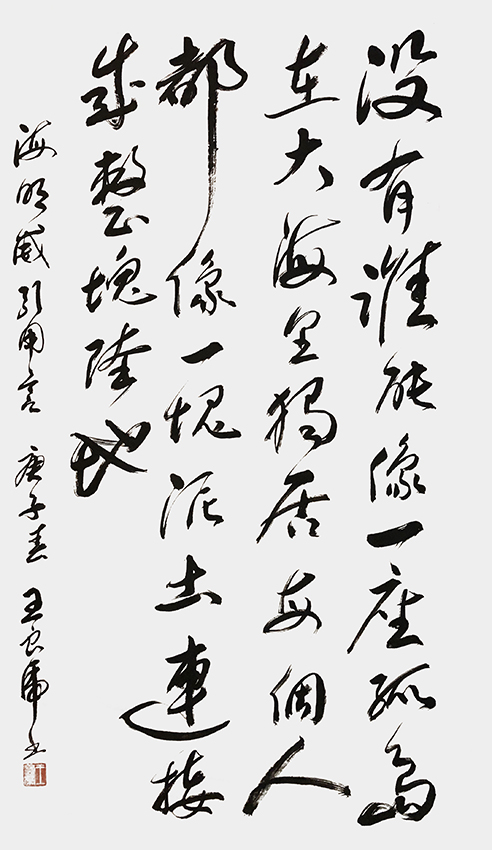 没有谁能像一座孤島
在大海里獨居每個人
都像一塊泥土連接
成整塊陸地
海明威引用言 庚子春 王良虎书